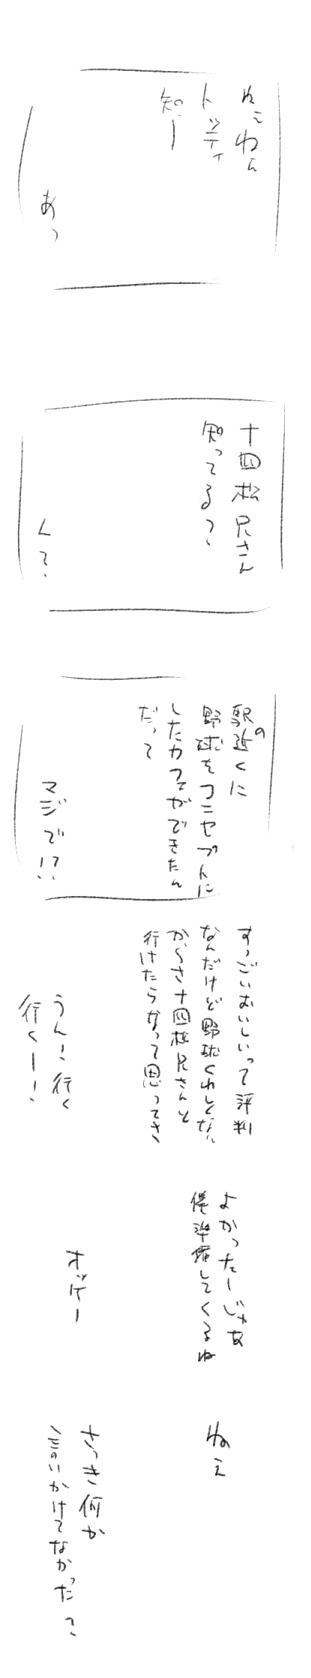 ねぇねぇ
トッティ
知ー
あっ
十四松兄さん
知ってる?
ん?
駅の近くに
野球をコンセプトに
したカフェができたん
だって
マジで!?
すっごいおいしいって評判
なんだけど野球くわしくない
からさ十四松兄さんと
行けたらなって思ってさ
うん!行く
行くー!
よかったーじゃあ
僕準備してくるね
オッケー
ねえ
さっき何か
言いかけてなかった?